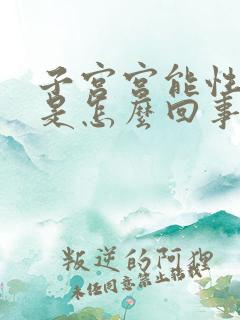 子宫宫能性
是怎麽回事
叛逆的阿狸
未经同意禁止转载